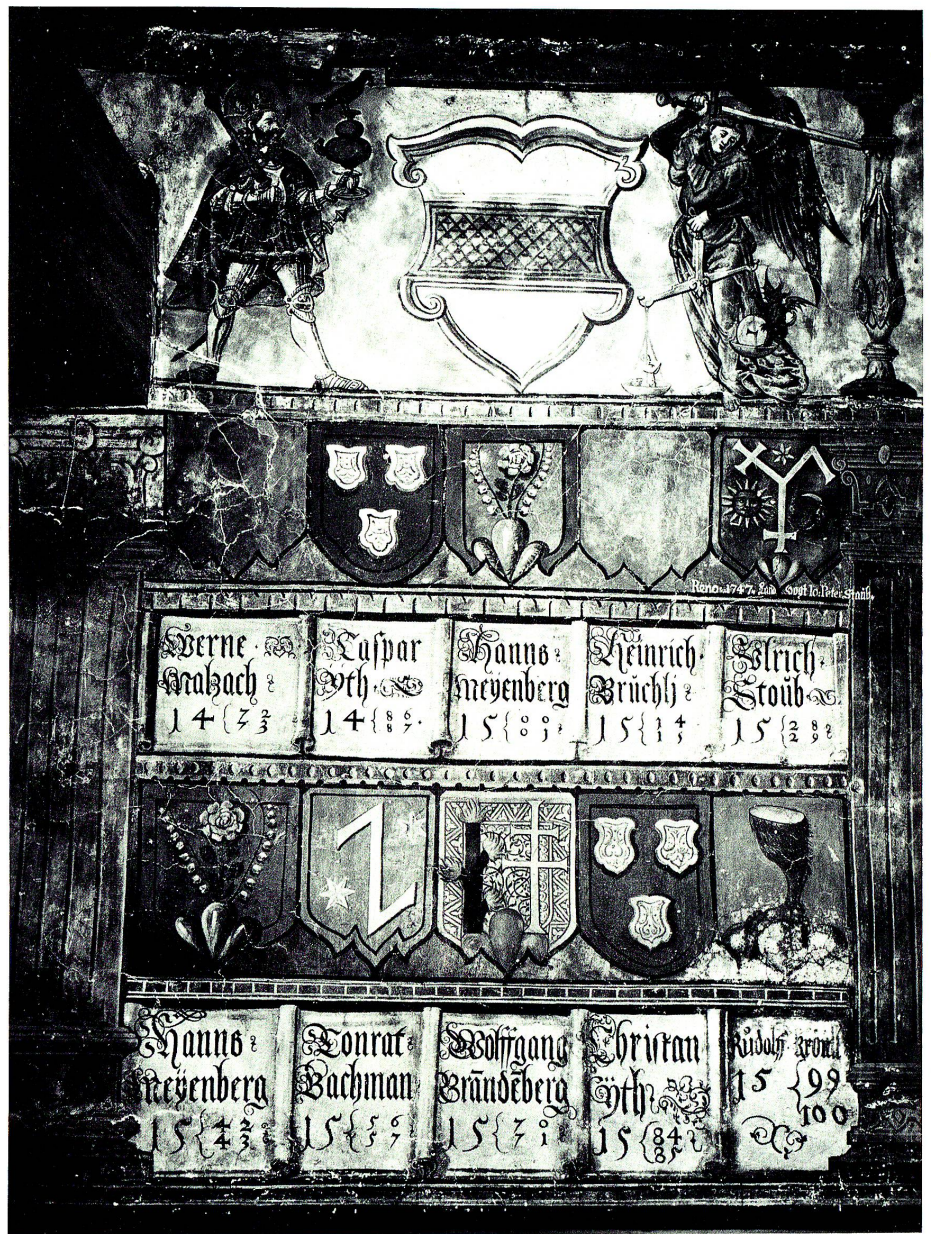 Reno. 1747. Land Vogt Io. Peter Staub.
Werne
Malzach
14{72 73
Caspar
Yth
14{86 87.
Hanns
Meÿenberg
15{00 01
Heinrich
Brüchli
15{14 15
Vlrich
Stoub
15{28 29
Hanns
Meÿenberg
15{42 43
Conrat
Bachman
15{56 57
Wolffgang
Brāndēberg
15{70 71
Christan
Ÿth
15{84 85
Rudolff
15{99 100